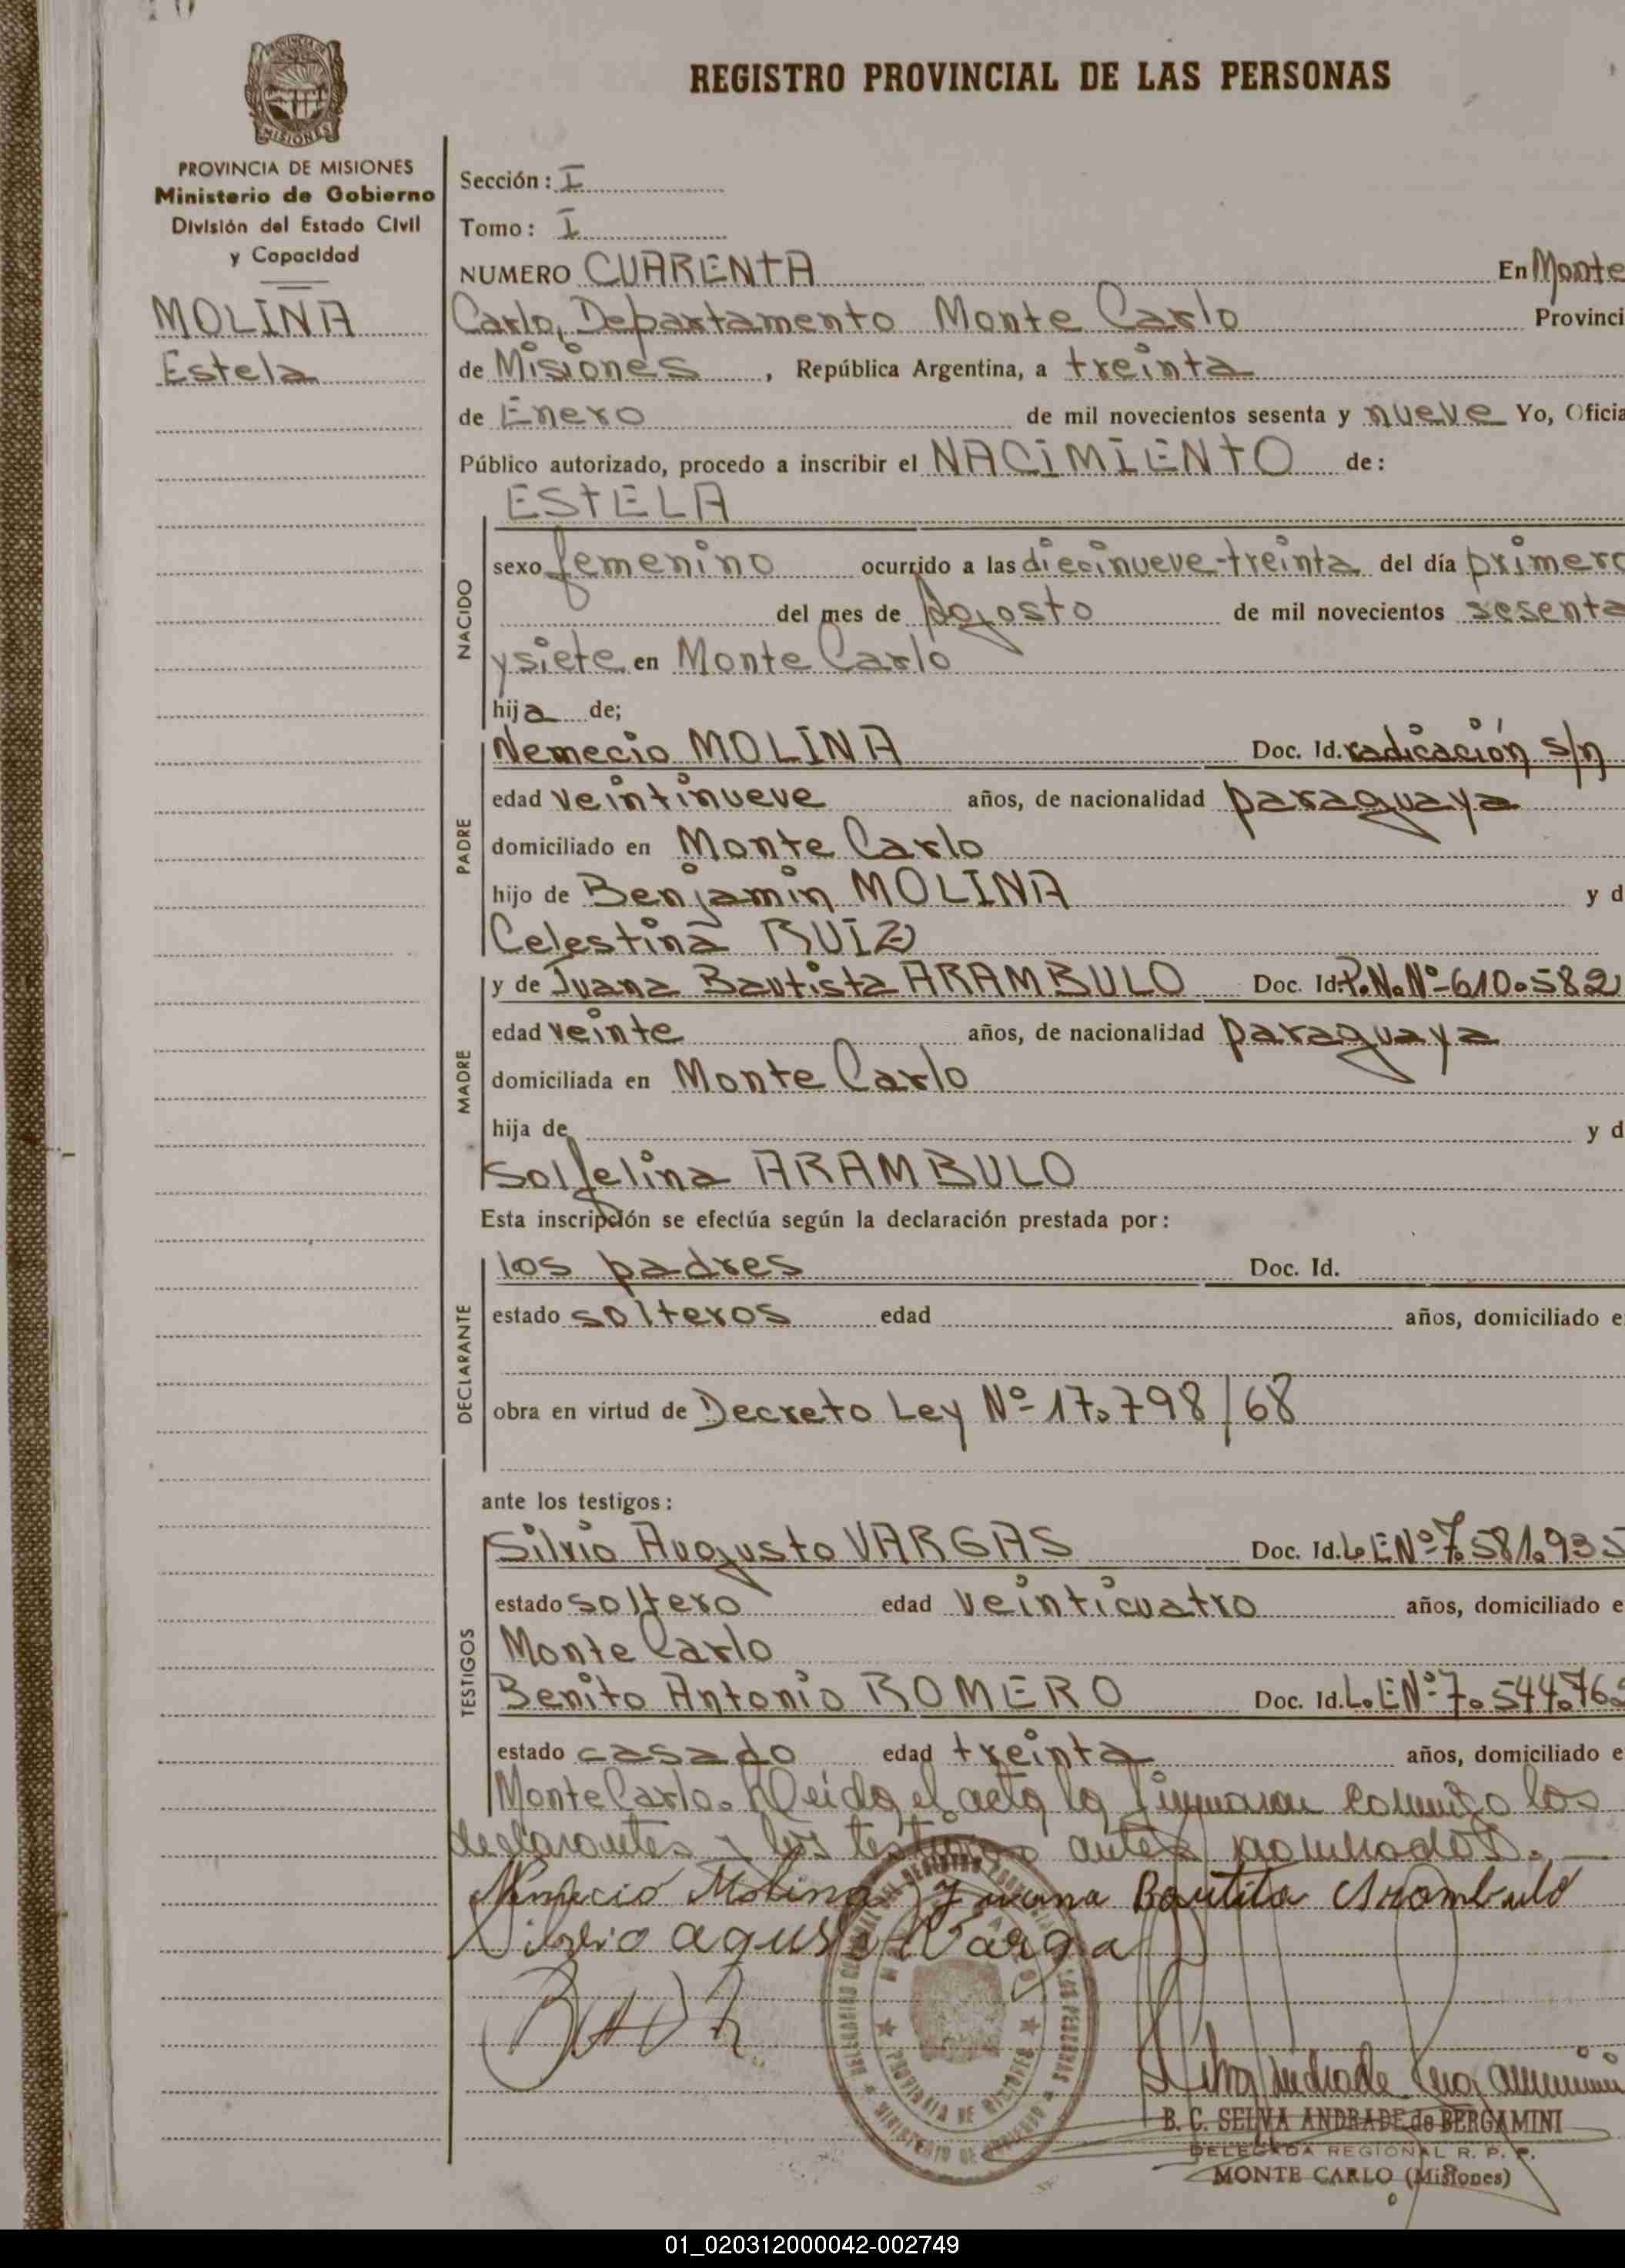 REGISTRO PROVINCIAL DE LAS PERSONAS
PROVINCIA DE MISIONES
Ministerio de Gobierno
División del Estado Civil
y Capacidad
MOLINA
Estela
Sección: I
Tomo: I
NUMERO CUARENTA En Monte
Carlo, Departamento Monte Carlo Provinci
de Misiones, República Argentina, a treinta
de Enero de mil novecientos sesenta y nueve Yo, Oficia
Público autorizado, procedo a inscribir el NACIMIENTO de:
ESTELA
NACIDO
sexo femenino ocurrido a las diecinueve-treinta del día primero
del mes de Agosto de mil novecientos sesenta
y siete en Monte Carlo
hija de;
PADRE
Nemecio MOLINA Doc. Id. radicación s/n
edad veintinueve años, de nacionalidad paraguaya
domiciliado en Monte Carlo
hijo de Benjamin MOLINA y d
Celestina RUIZ
MADRE
y de Juana Bautista ARAMBULO Doc. Id. P.N.Nº-610.582
edad veinte años, de nacionalidad paraguaya
domiciliada en Monte Carlo
hija de y d
Solfelina ARAMBULO
Esta inscripción se efectúa según la declaración prestada por:
DECLARANTE
los padres Doc. Id.
estado solteros edad años, domiciliado e
obra en virtud de Decreto Ley Nº 17.798/68
ante los testigos:
TESTIGOS
Silvio Augusto VARGAS Doc. Id. L.E.Nº-7.581.935
estado soltero edad veinticuatro años, domiciliado e
Monte Carlo
Benito Antonio ROMERO Doc. Id. L.E.Nº-7.544.76
estado casado edad treinta años, domiciliado e
Monte Carlo. Leída el acta la firman conmigo los
declarantes y los testigos antes nombrados.
Nemecio Molina Juana Bautita Arambulo
Silvio agusto Varga
PROVINCIA DE MISIONES
B. C. SELVA ANDRADE de BERGAMINI
DELEGADA REGIONAL R. P. P.
MONTE CARLO (Misiones)
01_020312000042-002749